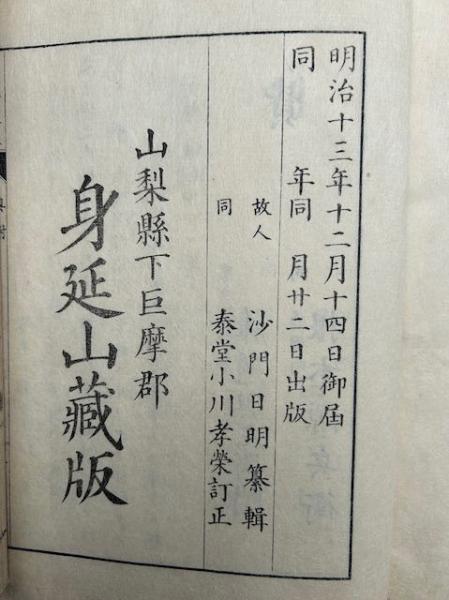 明治十三年十二月十四日御届
同 年同 月廿二日出版
故人 沙門日明纂輯
同 泰堂小川孝榮訂正
山梨縣下巨摩郡
身延山藏版